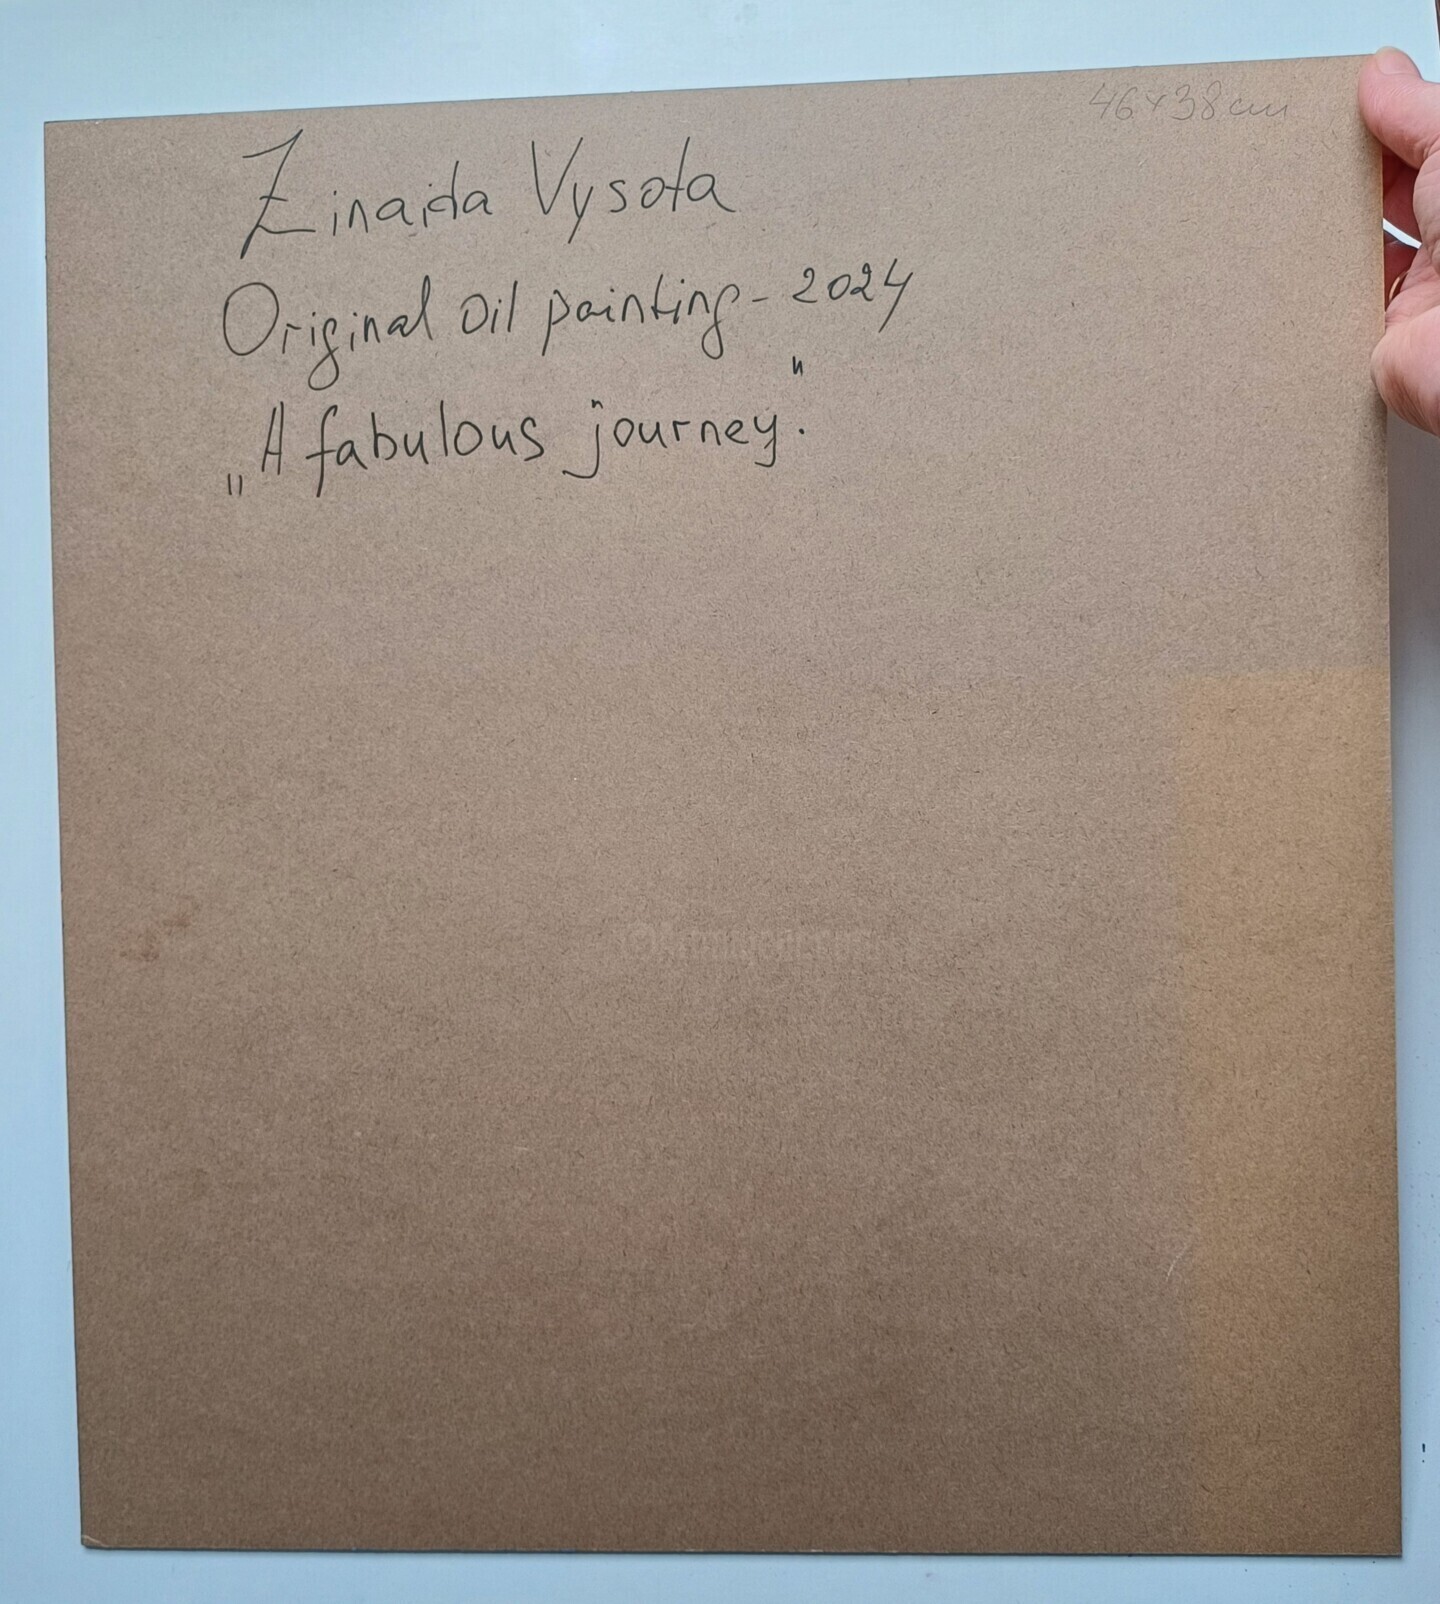 46×38cm
Zinaida Vysota
Original oil painting - 2024
„A fabulous journey."